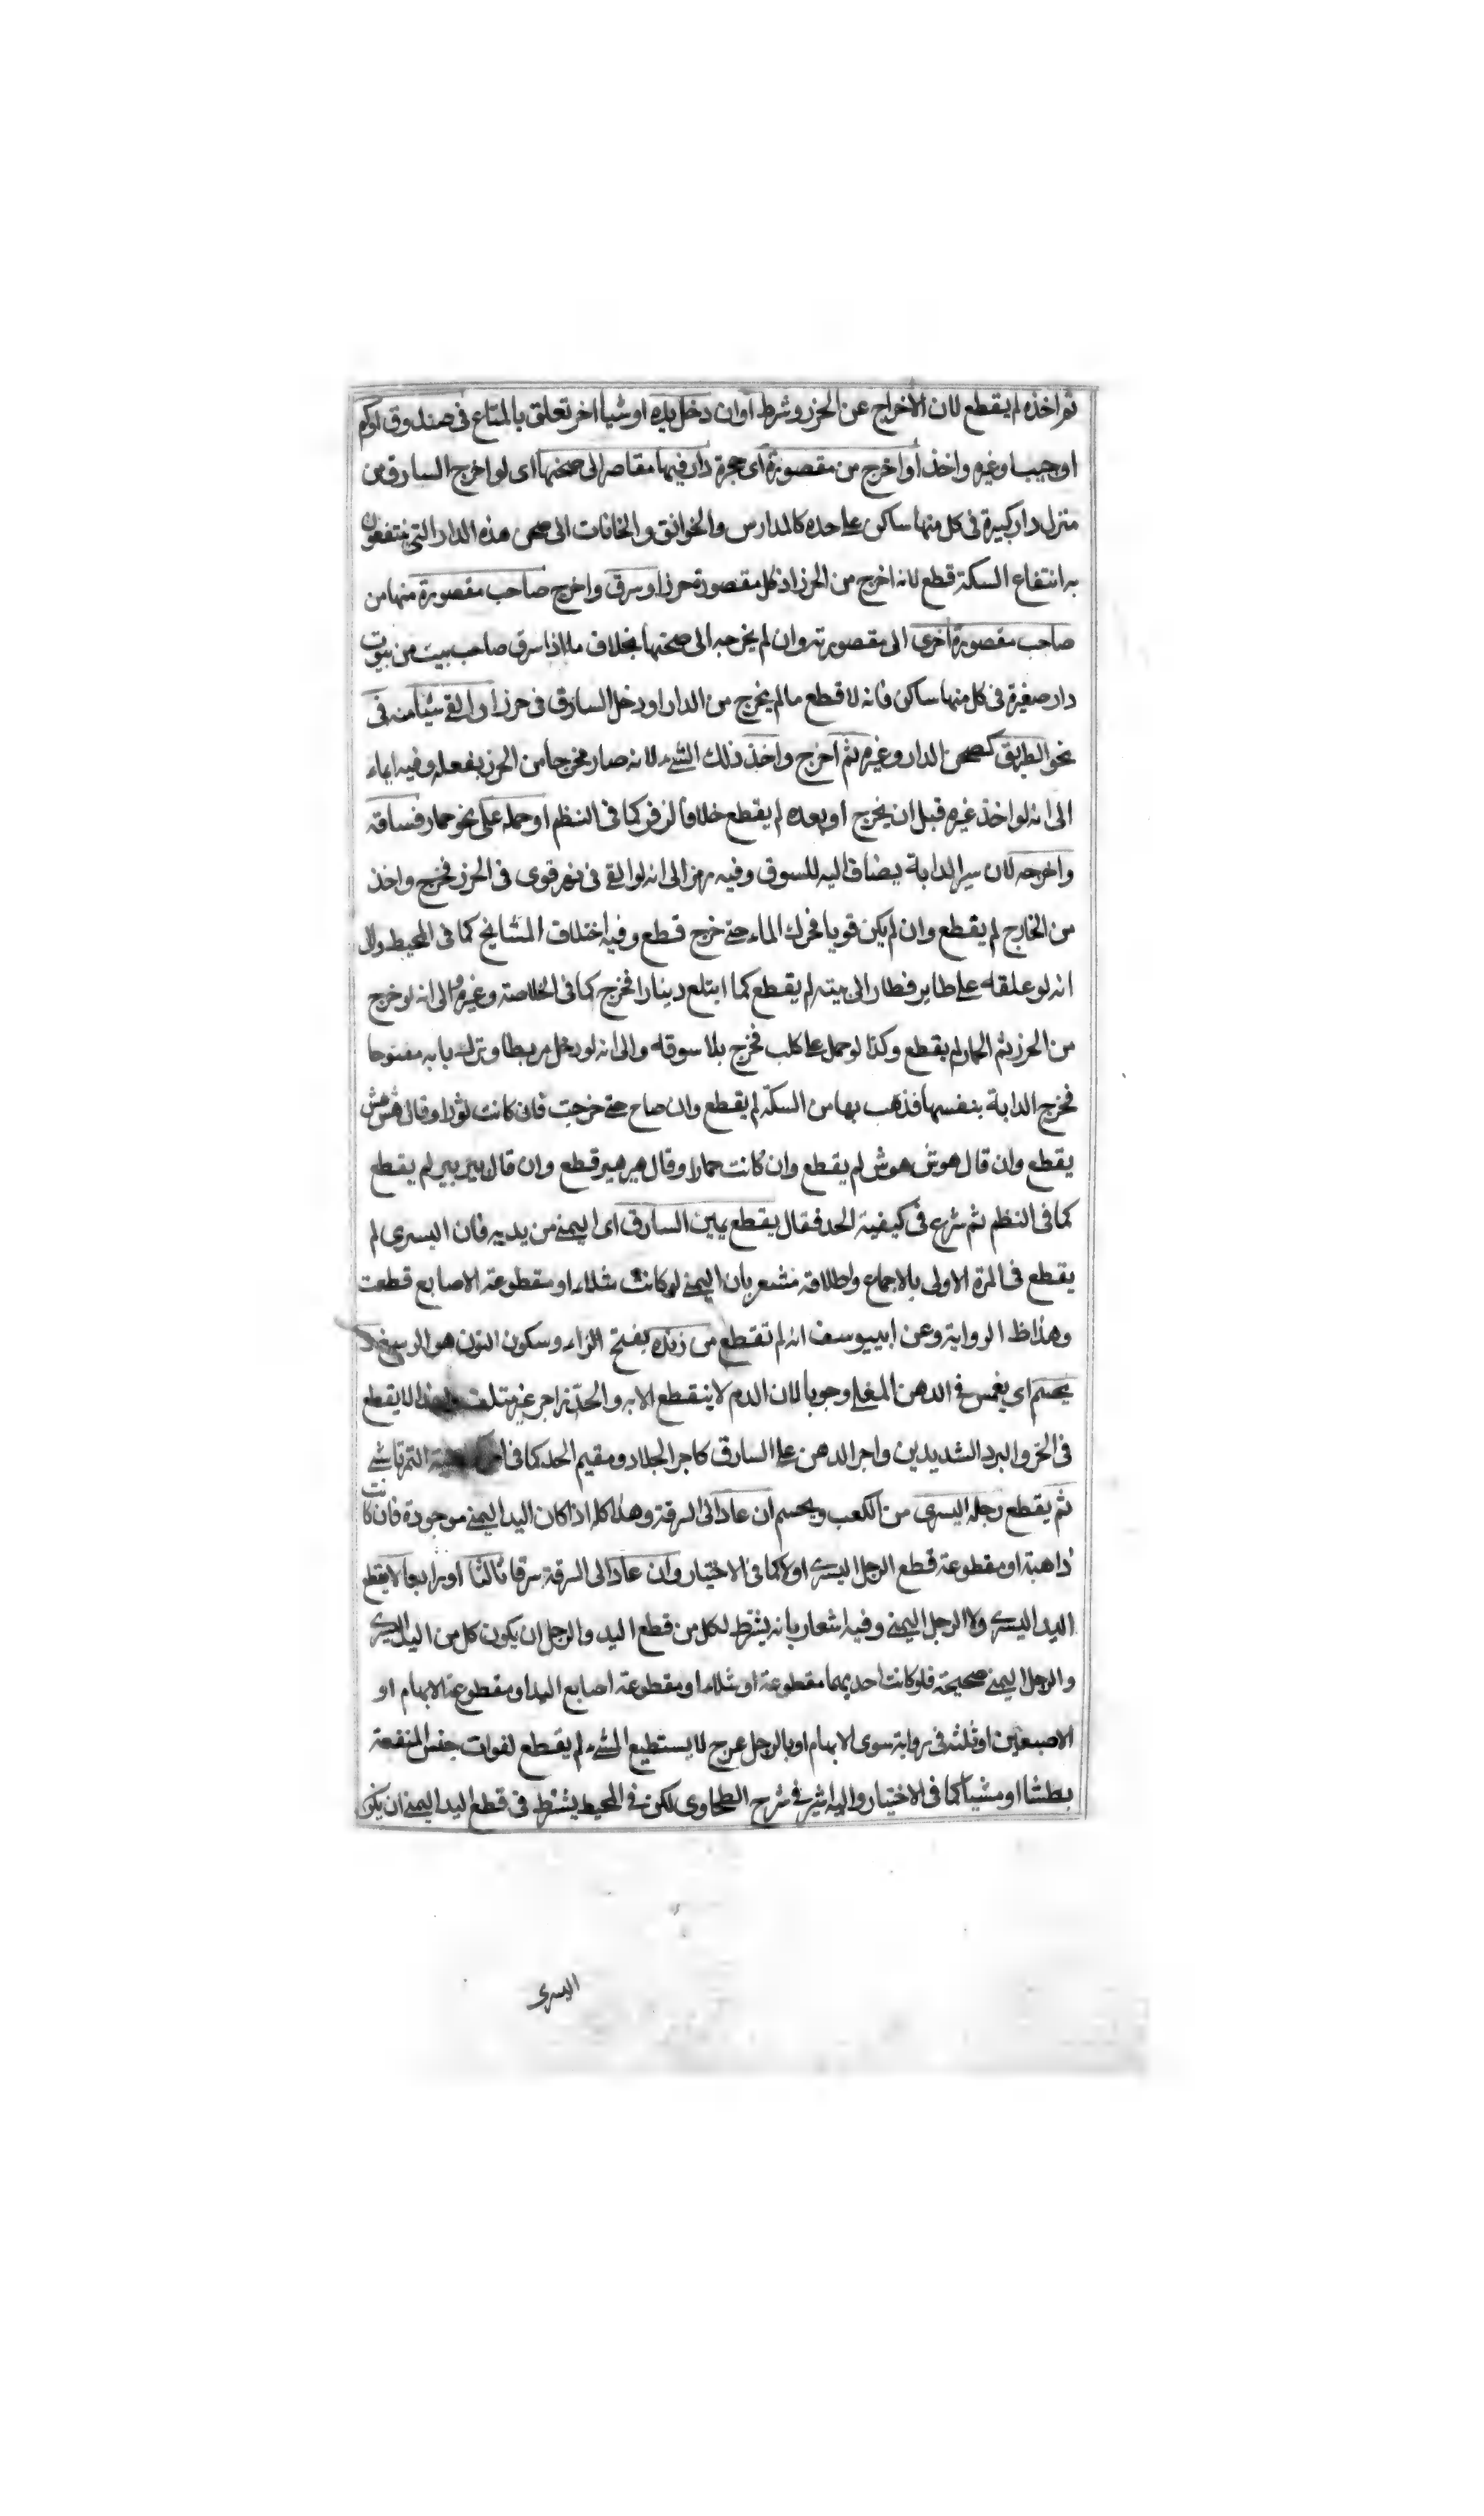 ثم اخذه لم يقطع لان الاخراج عن الحرز وشرط اوان دخل يده او شيا اخر تعلق بالمتاع فى صندوق او كم
او جيب او غيره واخذ او اخرج من مقصورة اى حجرة دار فيها مقاصر الى صحنها اى لو اخرج السارق من
منزل دار كبيرة فى كل منها ساكن على حده كالمدارس والخوانق والخانات الى صحن هذه الدار التى ينتفعون
به انتفاع السكة قطع لانه اخرج من الحرز اذ كل مقصورة حرز او سرق واخرج صاحب مقصورة منها من
صاحب مقصورة اخرى الى مقصورته وان لم يخرجه الى صحنها بخلاف ما اذا سرق صاحب بيت من بيوت
دار صغيرة فى كل منها ساكن فانه لا قطع ما لم يخرج من الدار او دخل السارق فى حرز او القى شيئا منه فى
نحو الطريق كصحن الدار وغيره ثم اخرج واخذ ذلك الشىء لانه صار مخرجا من الحرز بفعله وفيه ايماء
الى انه لو اخذ غيره قبل ان يخرج او بعده لم يقطع خلافا لزفر كما فى النظم او حمله على نحو حمار فساقه
واخرجه لان سير الدابة يضاف اليه للسوق وفيه رمز الى انه لو القى فى نهر قوى فى الحرز فخرج واخذ
من الخارج لم يقطع وان لم يكن قويا فحرك الماء حتى خرج قطع وفيه اختلاف المشايخ كما فى المحيط والى
انه لو علقه على طاير فطار الى بيته لم يقطع كما ابتلع دينارا فخرج كما فى الخلاصة وغيره والى انه لو خرج
من الحرز ثم الحمار لم يقطع وكذا لو حمل على كلب فخرج بلا سوقه والى انه لو دخل مربطا وترك بابه مفتوحا
فخرج الدابة بنفسها فذهب بها من السكة لم يقطع وان صاح حتى خرجت فان كانت ثورا وقال هش هش
يقطع وان قال هوش هوش لم يقطع وان كانت حمارا وقال هير هير قطع وان قال بير بير لم يقطع
كما فى النظم ثم شرع فى كيفية الحد فقال يقطع يمين السارق اى اليمنى من يديه فان اليسرى لم
يقطع فى المرة الاولى بالاجماع واطلاقه مشعر بان اليمنى لو كانت شلاء او مقطوعة الاصابع قطعت
وهذا ظ الرواية وعن ابييوسف انه لم تقطع من زنده بفتح الزاء وسكون النون هو الرسغ و
يحسم اى يغمس فى الدهن المغلى وجوبا لان الدم لا ينقطع الا به والحد زاجر غير متلف ولهذا لا يقطع
فى الحر والبرد الشديدين واجر الدهن على السارق كاجر الجلاد ومقيم الحد كما فى التمرتاشى
ثم يقطع رجله اليسرى من الكعب ويحسم ان عاد الى السرقة وهذا كله اذا كان اليد اليمنى موجودة فان كانت
ذاهبة او مقطوعة قطع الرجل اليسرى اولا كما فى الاختيار وان عاد الى السرقة سرقا ثالثا او رابعا لا يقطع
اليد اليسرى ولا الرجل اليمنى وفيه اشعار بانه يشترط لكل من قطع اليد والرجل ان يكون كل من اليد اليسرى
والرجل اليمنى صحيحة فلو كانت احديهما مقطوعة او شلاء او مقطوعة اصابع اليد او مقطوعة الابهام او
الاصبعين او ثلثه فى رواية سوى الابهام او بالرجل عرج لا يستطيع المشى لم يقطع لفوات جنس المنفعة
بطشا او مشيا كما فى الاختيار واليه اشير فى شرح الطحاوى لكن فى المحيط يشترط فى قطع اليد اليمنى ان يكون
اليسرى